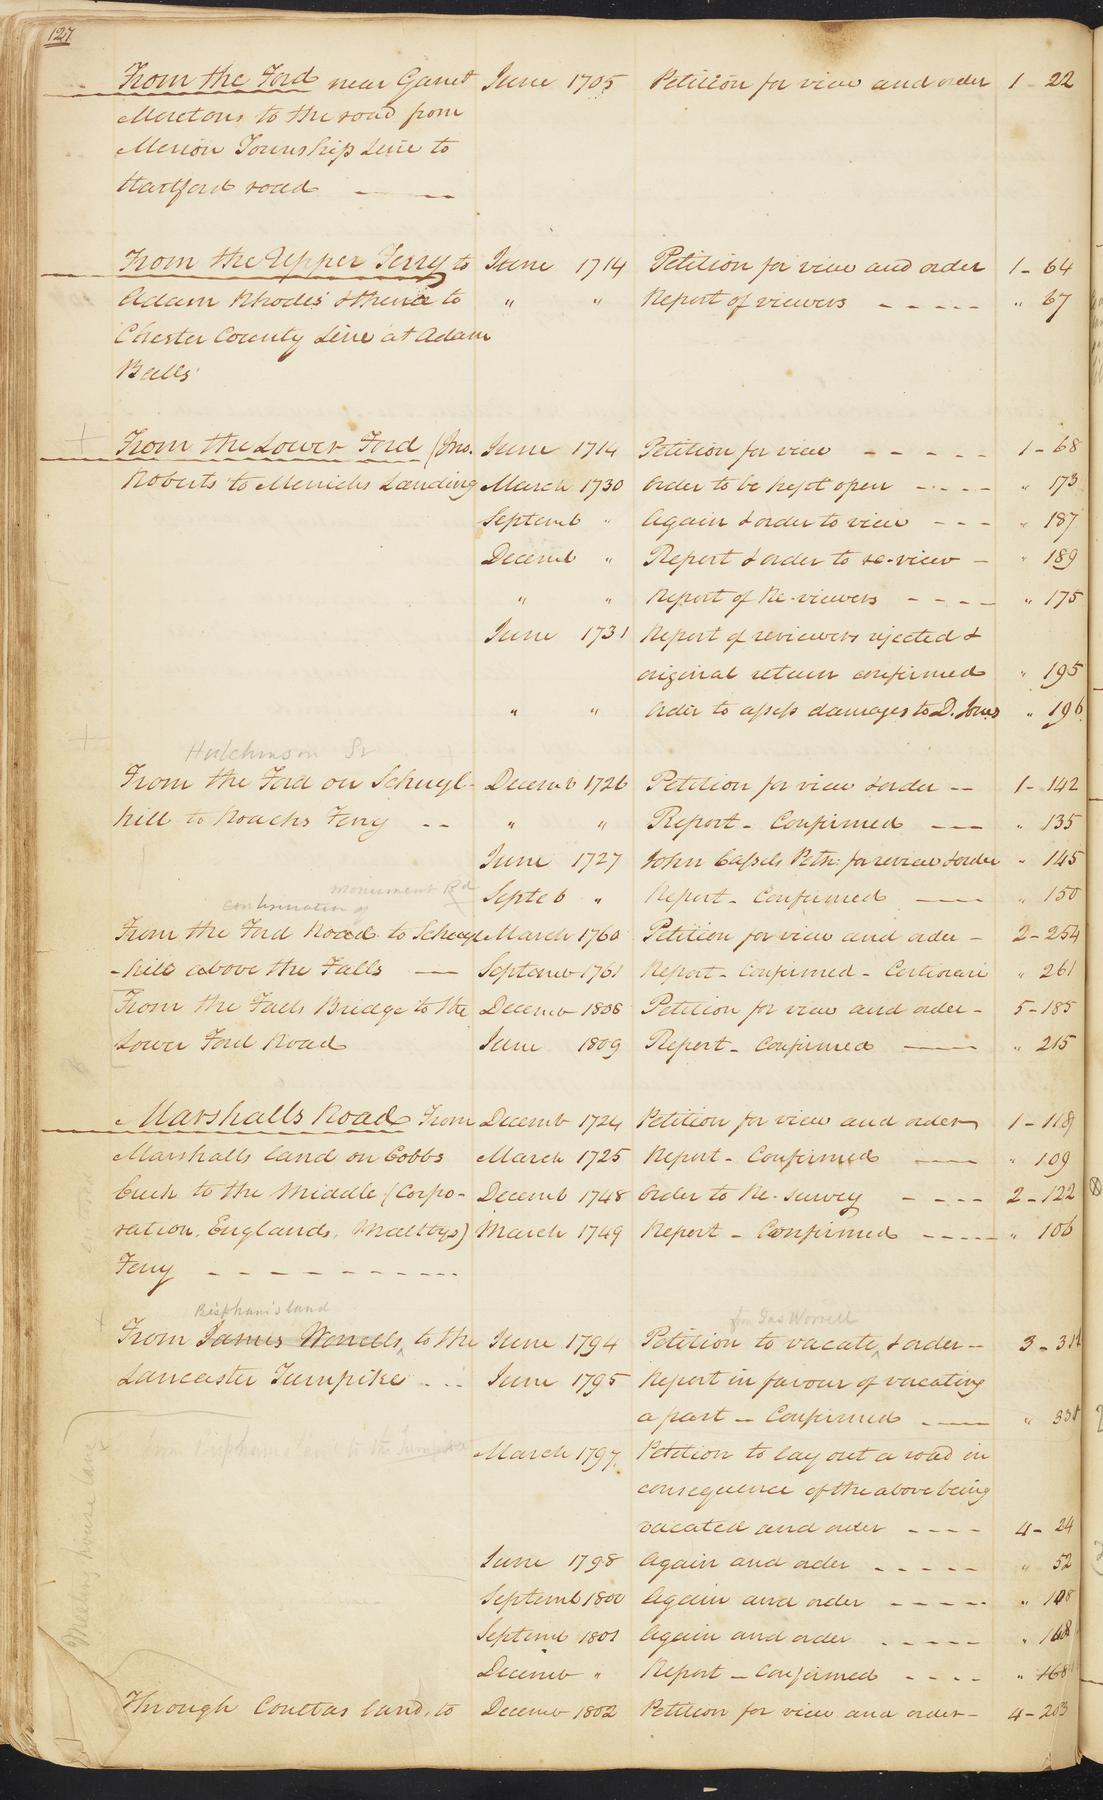 127
From the Ford near Garret June 1705 Petition for view and order 1 - 22
Moretons to the road from
Merion Township Line to
Hartford road
From the Upper Ferry to June 1714 Petition for view and order 1 - 64
Adam Rhodes & thence to " " Report of viewers " 67
Chester County Line at Adam
Balls
From the Lower Ford (Jno. June 1714 Petition for view 1 - 68
Roberts to Merricks Landing March 1730 Order to be kept open " 173
Septemb " Again & order to view " 187
Decemb " Report & order to re-view " 189
" " Report of Re-viewers " 175
June 1731 Report of reviewers rejected &
original return confirmed " 195
" " Order to assess damages to D. Jones " 196
Hutchinson Sr
From the Ford on Schuyl- Decemb 1726 Petition for view & order 1 - 142
kill to Roachs Ferry " " Report - Confirmed " 135
June 1727 John Cassels Petn. for review & order " 145
monument Rd
Septeb " Report - Confirmed " 150
continuation of
From the Ford Road to Schuyl March 1760 Petition for view and order 2 - 254
-kill above the Falls Septemb 1761 Report - Confirmed - Certiorari " 261
From the Falls Bridge to the Decemb 1808 Petition for view and order 5 - 185
Lower Ford Road June 1809 Report - Confirmed " 215
Marshalls Road From Decemb 1724 Petition for view and order 1 - 118
Marshalls land on Cobbs March 1725 Report - Confirmed " 109
Creek to the Middle (Corpo- Decemb 1748 Order to Re-survey 2 - 122
ration, Englands, Maltbys) March 1749 Report - Confirmed " 106
Ferry
Bispham's land for Jas Worrell
From James Worrells, to the June 1794 Petition to vacate, & order 3 - 312
Lancaster Turnpike June 1795 Report in favour of vacating
a part - Confirmed " 338
from Bisphams land to the Turnpike
March 1797 Petition to lay out a road in
consequence of the above being
vacated and order 4 - 24
June 1798 Again and order " 52
Septemb 1800 Again and order " 108
Septemb 1801 Again and order " 168
Decemb " Report - Confirmed " 168
Meeting house lane
Through Coultas land, to Decemb 1802 Petition for view and order 4 - 203